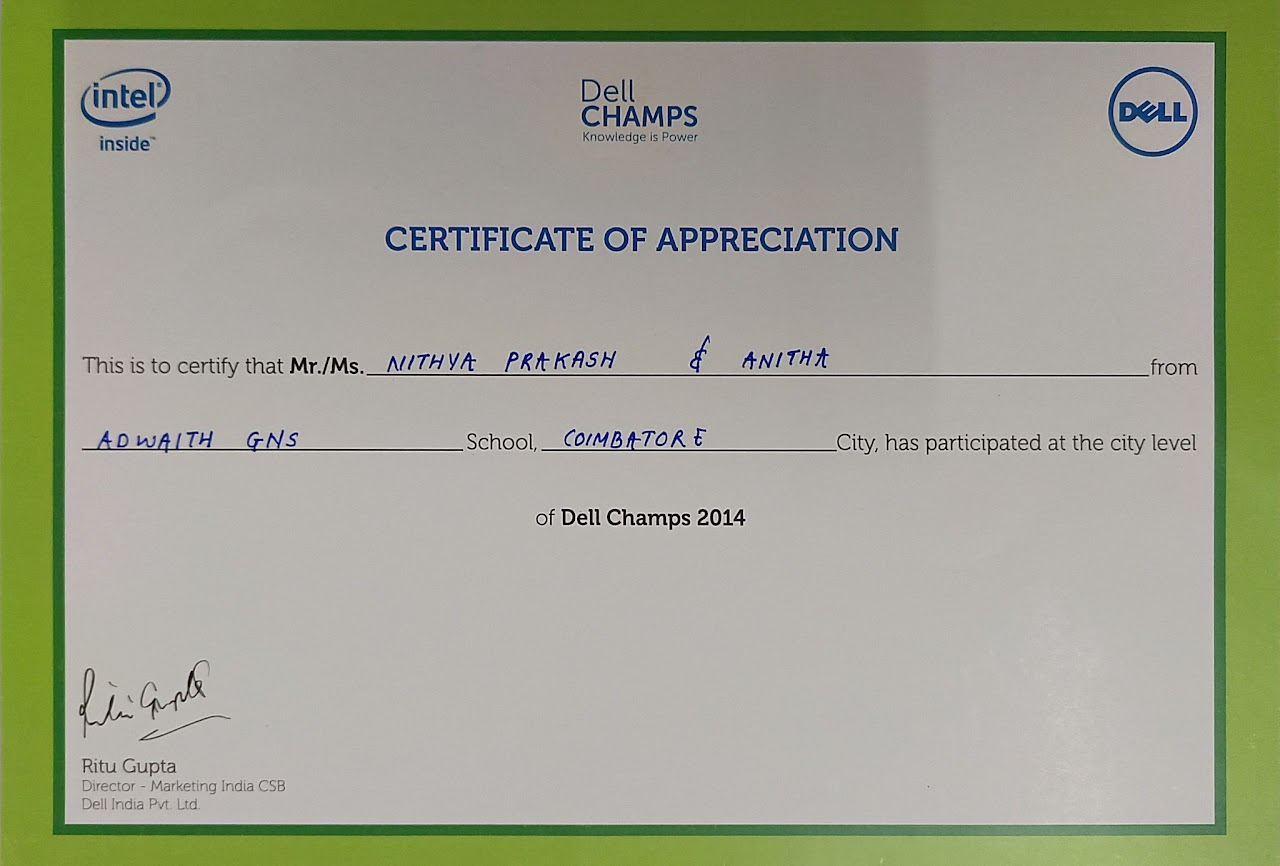 intel
inside™
Dell
CHAMPS
Knowledge is Power
DELL
CERTIFICATE OF APPRECIATION
This is to certify that Mr./Ms. NITHYA PRAKASH & ANITHA from
ADWAITH GNS School, COIMBATORE City, has participated at the city level
of Dell Champs 2014
Ritu Gupta
Ritu Gupta
Director - Marketing India CSB
Dell India Pvt. Ltd.